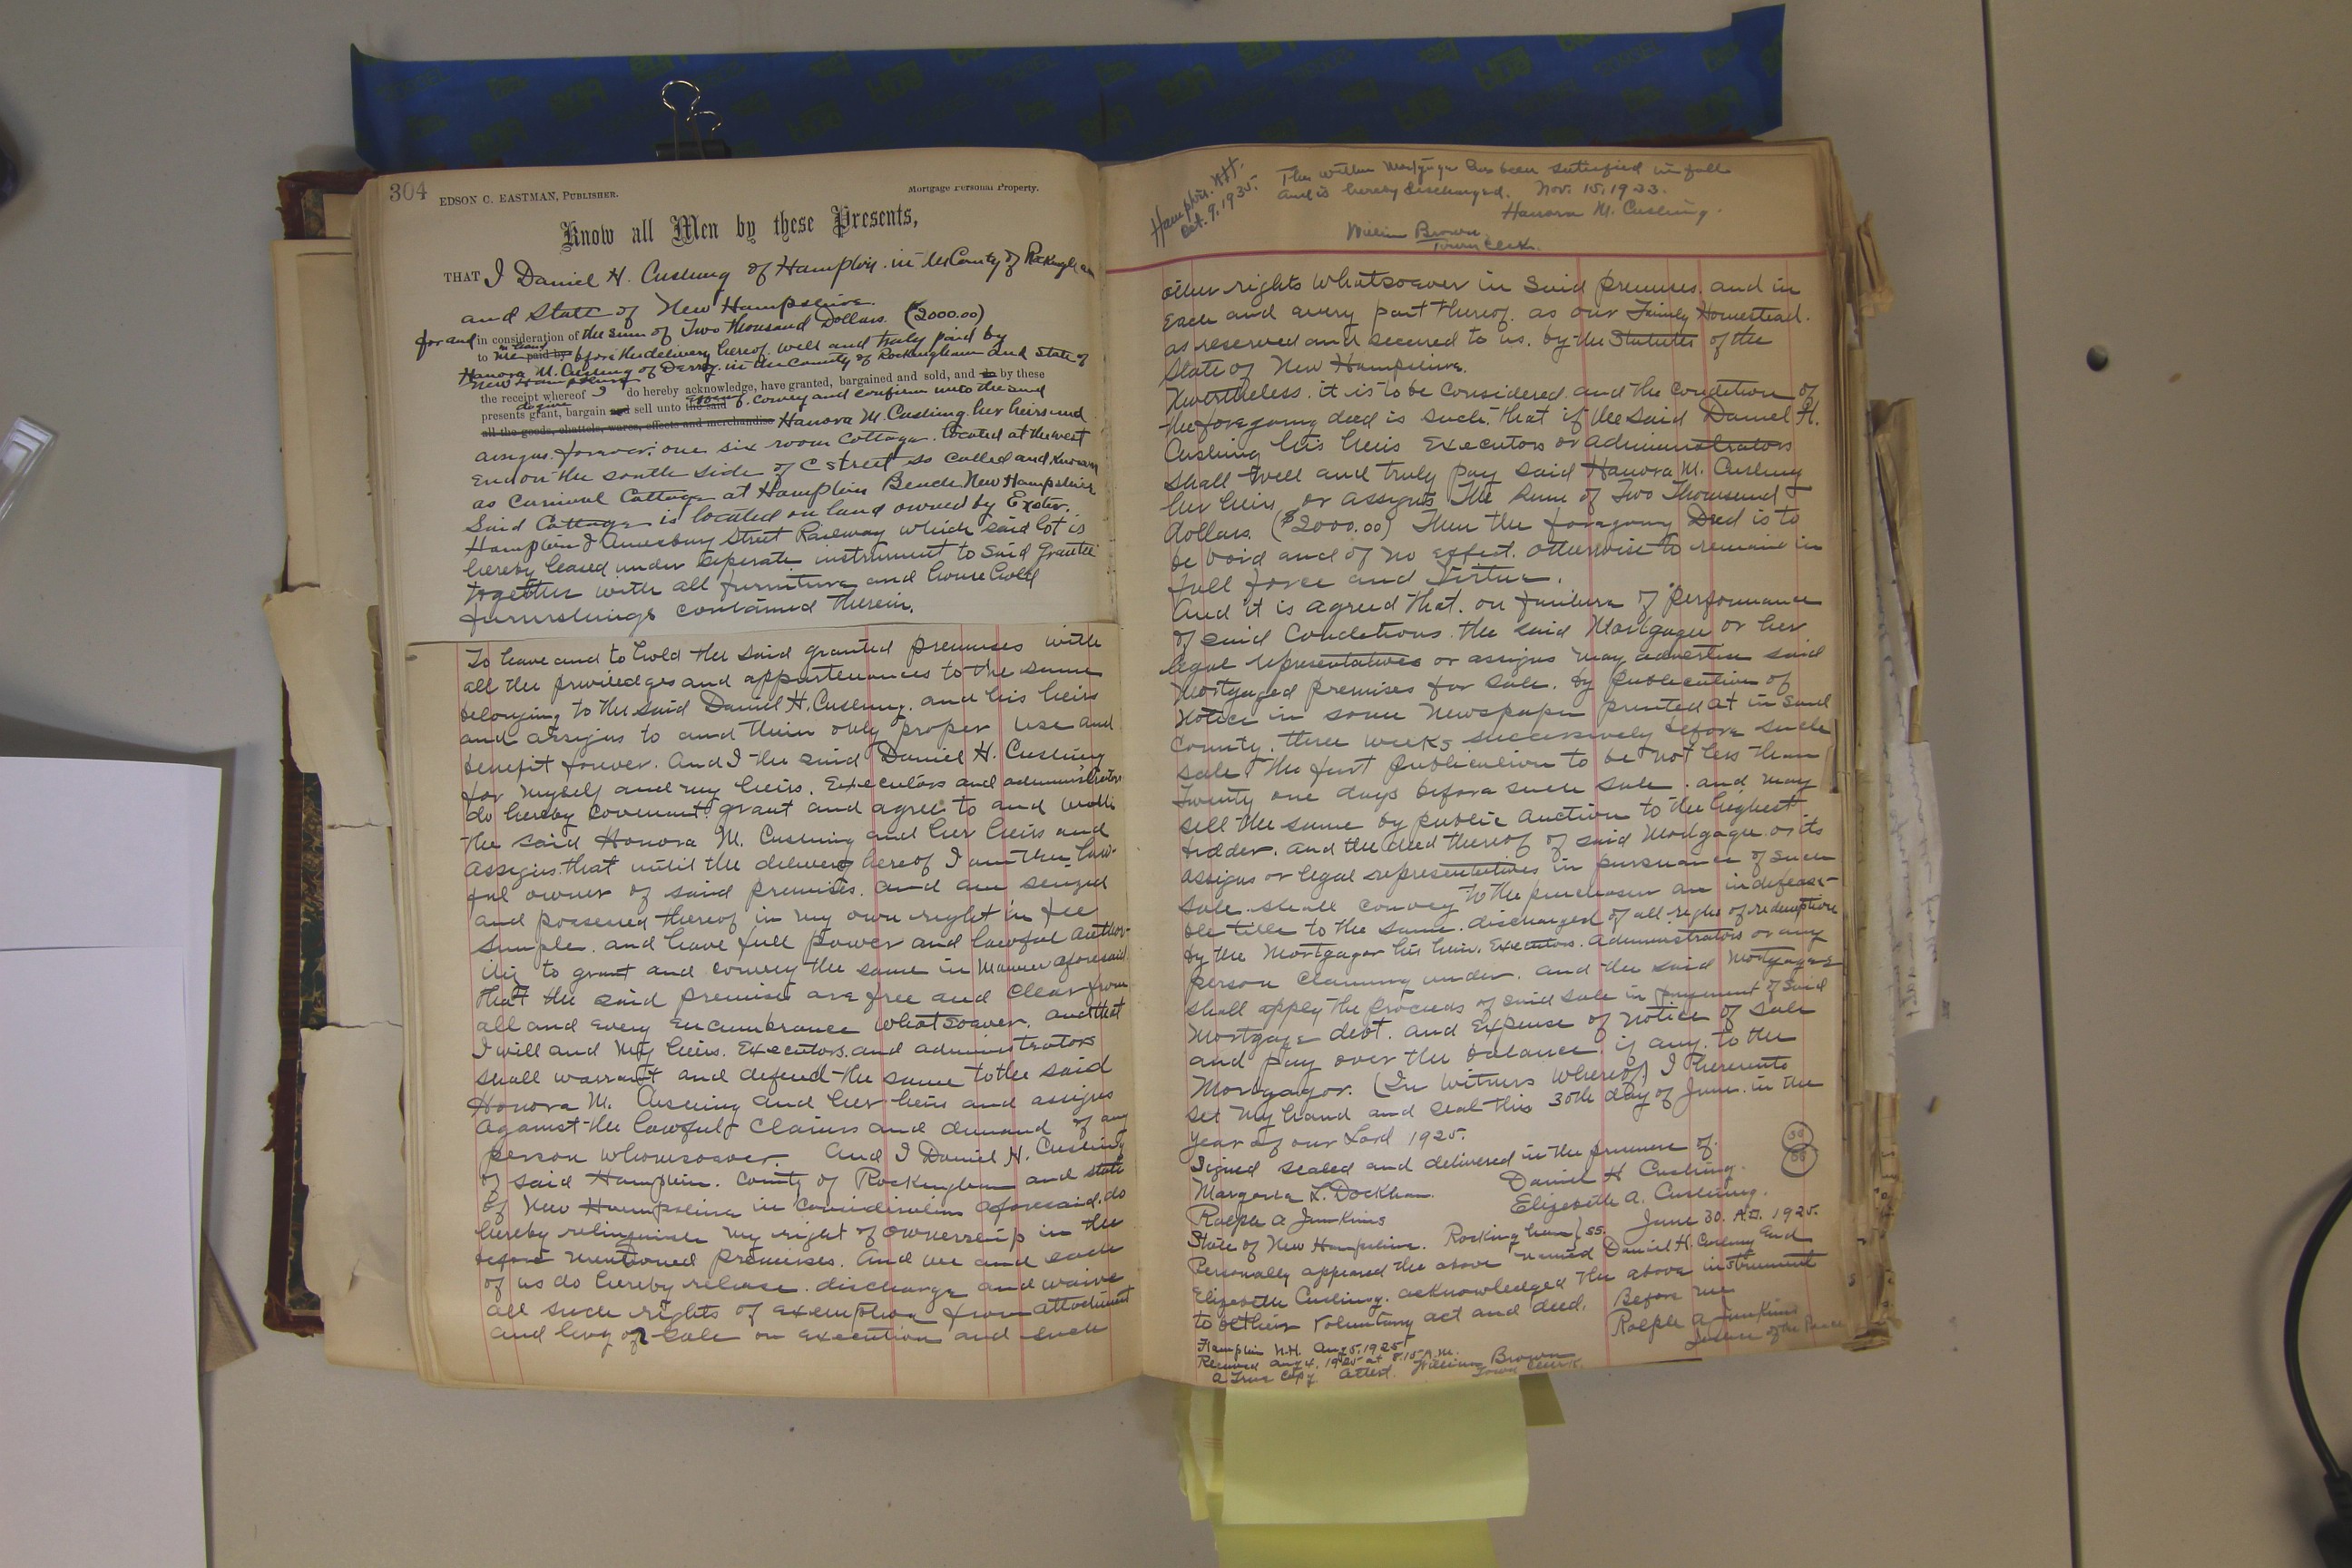 304
EDSON C. EASTMAN, PUBLISHER.
Mortgage Personal Property.
Know all Men by these Presents,
THAT I Daniel H. Cushing of Hampton. in the County of Rockingham
and State of New Hampshire.
for and in consideration of the sum of Two thousand Dollars. ($2000.00)
to me in hand paid by before the delivery hereof well and truly paid by
Hanora M. Cushing of Derry. in the County of Rockingham and State of
New Hampshire
the receipt whereof I do hereby acknowledge, have granted, bargained and sold, and do by these
presents do give grant, bargain and sell unto the said convey and confirm unto the said
all the goods, chattels, wares, effects and merchandise Hanora M. Cushing her heirs and
assigns forever; one six room Cottage. located at the west
end on the south side of C street so called and known
as Carnival Cottage at Hampton Beach New Hampshire
Said Cottage is located on land owned by Exeter.
Hampton & Amesbury Street Railway which said lot is
hereby leased under seperate instrument to said grantee
together with all furniture and household
furnishings contained therein.
To have and to hold the said granted premises with
all the priviledges and appurtenances to the same
belonging to the said Daniel H. Cushing. and his heirs
and assigns to and their only proper use and
benefit forever. And I the said Daniel H. Cushing
for myself and my heirs. Executors and administrators
do hereby covenant. grant and agree to and with
the said Honora M. Cushing and her heirs and
assigns. that until the delivery hereof I am the law-
ful owner of said premises. and am seized
and possessed thereof in my own right in fee
simple. and have full power and lawful author-
ity to grant and convey the same in Manner aforesaid.
that the said premises are free and clear from
all and every encumbrance whatsoever. and that
I will and my heirs. Executors. and administrators
shall warrant and defend the same to the said
Honora M. Cushing and her heirs and assigns
against the lawful claims and demand of any
person whomsoever. And I Daniel H. Cushing
of said Hampton. County of Rockingham and state
of New Hampshire in consideration aforesaid. do
hereby relinquish my right of ownership in the
before mentioned premises. And we and each
of us do hereby release. discharge and waive
all such rights of exemption from attachment
and levy or sale on execution and such
Hampton. N.H.
Oct. 9, 1935.
The within Mortgage has been satisfied in full
and is hereby discharged. Nov. 15, 1933.
Hanora M. Cushing.
William Brown
Town Clerk.
other rights whatsoever in said premises. and in
each and every part thereof. as our Family Homestead.
as reserved and secured to us. by the Statutes of the
State of New Hampshire.
Nevertheless. it is to be considered. and the condition of
the foregoing deed is such. that if the said Daniel H.
Cushing his heirs executors or administrators
shall well and truly pay said Hanora M. Cushing
her heirs or assigns the sum of Two Thousand
dollars. ($2000.00) Then the foregoing Deed is to
be void and of no effect. otherwise to remain in
full force and virtue.
And it is agreed that. on failure of performance
of said Conditions. the said Mortgagee or her
legal representatives or assigns may advertise said
Mortgaged premises for sale. by publication of
notice in some newspaper printed at in said
County. three weeks successively before such
sale. The first publication to be not less than
Twenty one days before such sale. and may
sell the same by public auction to the highest
bidder. and the deed thereof of said Mortgagee or its
assigns or legal representatives in pursuance of such
sale. shall convey to the purchaser an indefeasi-
ble title to the same. discharged of all right of redemption
by the Mortgagor his heirs. Executors. administrators or any
person claiming under. and the said Mortgagee
shall apply the proceeds of said sale in payment of said
Mortgage debt. and expense of notice of sale
and pay over the balance. if any. to the
Mortgagor. (In witness whereof) I hereunto
set my hand and seal this 30th day of June. in the
year of our Lord 1925.
Signed sealed and delivered in the presence of.
Daniel H Cushing.
Elizabeth A. Cushing.
Ralph A Junkins
State of New Hampshire. Rockingham} ss. June 30. A.D. 1925.
Personally appeared the above named Daniel H. Cushing and
Elizabeth Cushing. acknowledged the above instrument
to be their voluntary act and deed. Before me
Ralph A Junkins
Justice of the Peace
Hampton N.H. Aug 5, 1925
Received Aug 4. 1925 at 8.15 A.M.
A True Copy. Attest. William Brown
Town Clerk.